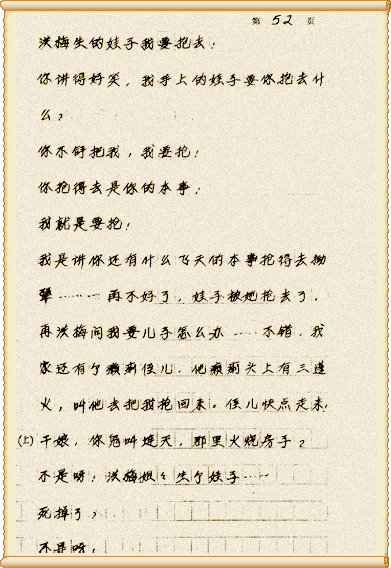 第 52 页
洪梅生的娃子我要抱去！
你讲得好笑，我手上的娃子要你抱去什
么？
你不许抱我，我要抱！
你抢得去是你的本事！
我就是要抢！
我是讲你还有什么飞天的本事抢得去
………再不好了，娃子被她抢去了，
再洪梅问我要儿子怎么办……不错，我
家还有个癞痢侄儿，他癞痢头上有三道
火，叫他去把我抢回来。侄儿快点走来！
(上)干娘，你鬼叫连天，那里火烧房子？
不是呀！洪梅姐々生个娃子……
死掉了？
不是呀！